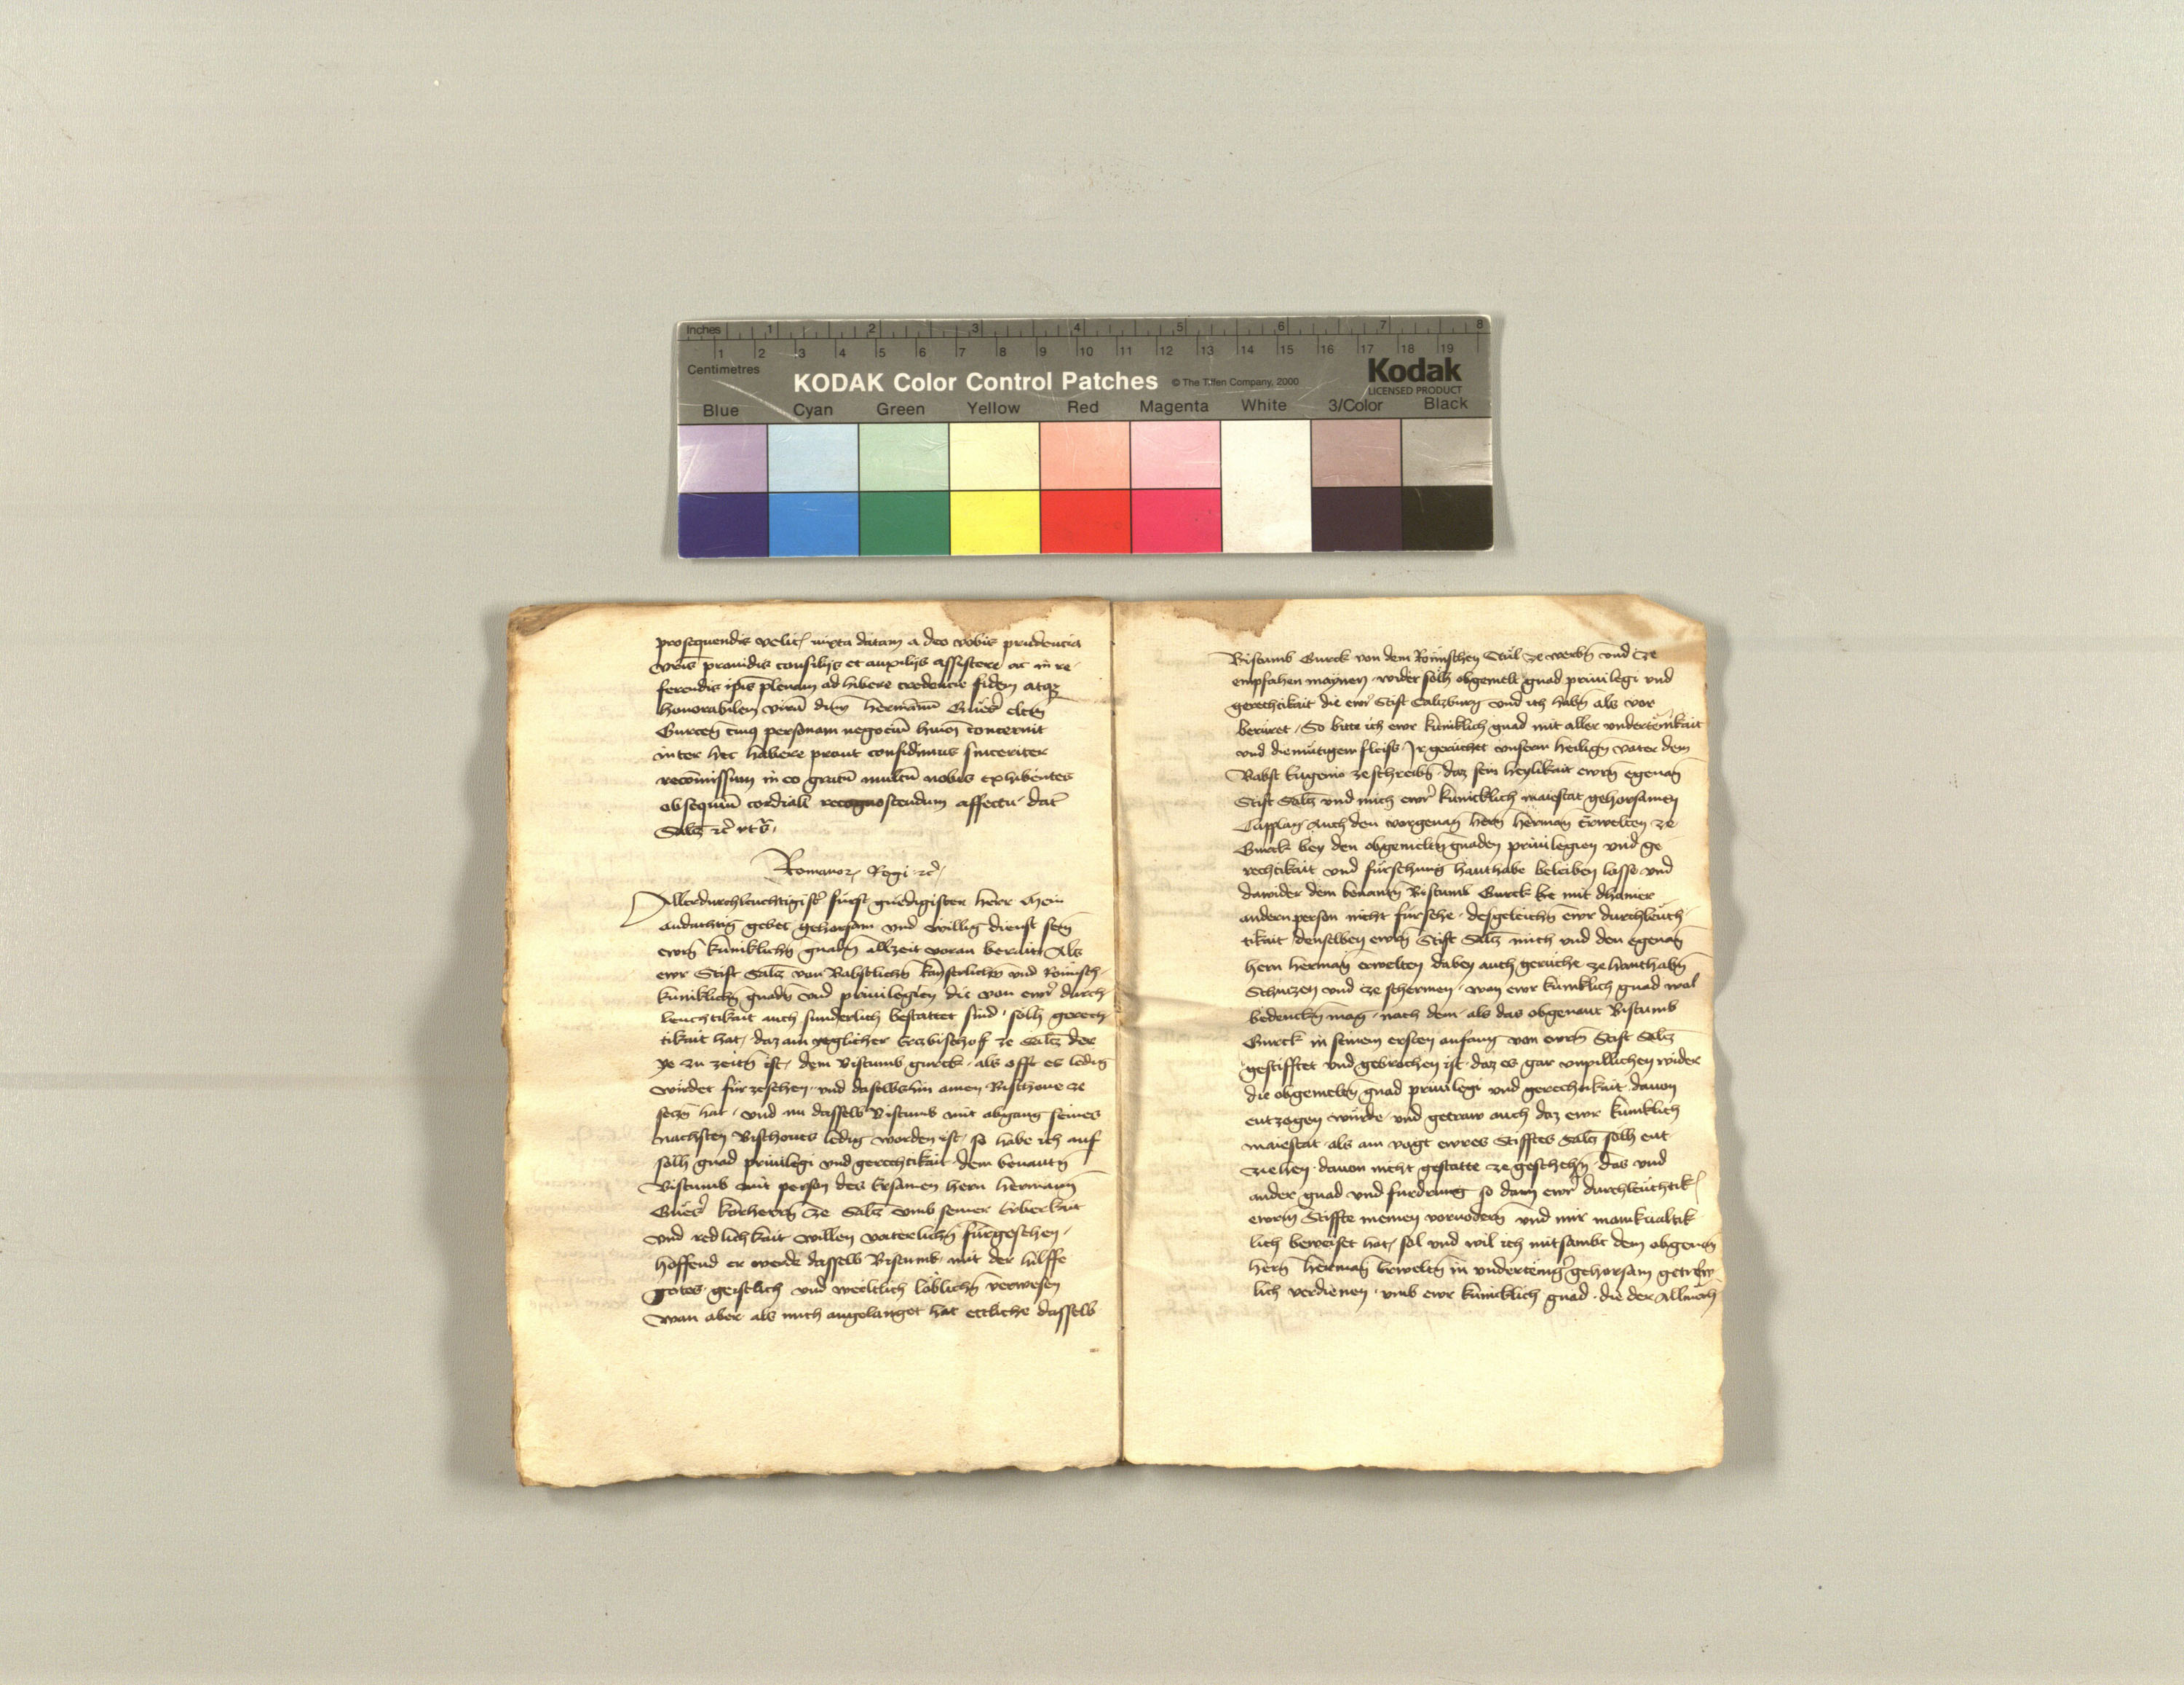 Inches 1 2 3 4 5 6 7 8
1 2 3 4 5 6 7 8 9 10 11 12 13 14 15 16 17 18 19
Centimetres
KODAK Color Control Patches © The Tiffen Company, 2000
Kodak
LICENSED PRODUCT
Blue Cyan Green Yellow Red Magenta White 3/Color Black
prosequendis velit iuxta datam a deo vobis prudencia
vr̄is prouidis consilijs et auxilijs assistere ac in re
ferendis ip̄is plenam adhibere credencie fidem atqꝫ
honorabilem virū dn̄m hermannū
Gurceñ cuiꝯ personam negociū concernit
inter hec habere prout confidimus sinceriter
recōmissum in eo gratū multū nobis exhibentes
obsequiū cordiali recognoscendum affectu · dat̄
Salꝫ ꝛc̄
Romanoꝝ Regi ꝛc̄
Allerdurchleuchtigister fürst gnedigister herr Mein
andachtig gebet gehorsam vnd willig dienst sein
ewrn̄ küniklichn̄ gnadn̄ allzeit voran berait Als
ewr Stift Salꝫ von Babstlichn̄ kayserlichn̄ vnd Römisch
küniklichn̄ gnadn̄ vnd priuilegien die von ewr̄ durch
leuchtikait auch sunderlich bestattet sind · solh gerech
tikait hat · daz ain yeglicher Erzbischof ze Salꝫ der
ye zu zeitn̄ ist · dem Bistumb gurck · als offt es ledig
wirdet fürzesehen · vnd daselbshin ainen Bischoue ze
seczn̄ hat · vnd nu dasselb Bistumb mit abgang seines
nachsten Bischoues ledig worden ist · so habe ich auf
solh gnad priuilegi vnd gerechtikait dem benantn̄
Bistumb mit person des Ersamen hern hermann
korherrn̄ ze Salꝫ vmb seiner Erberkait
vnd redlichkait willen vaterlichn̄ fürgesehen ·
hoffend er werde dasselb Bistumb mit der hilffe
gotes geistlich vnd weltlich löblichn̄ verwesen
Wan aber als mich angelanget hat ettliche dasselb
Bistumb Gurck von dem Römischen Stül ze werbn̄ vnd ze
empfahen maynen · wider solh obgemelt gnad priuilegi vnd
gerechtikait die ewr Stift Salczburg vnd ich habn̄ als vor
berürt · So bitte ich ewr küniklich gnad mit aller vndertenikait
vnd diemütigem fleiss · Ir gerüchet vnserm heilign̄ vater dem
Babst Eugenio ze schreibn̄ · daz sein heylikait ewrn̄ egenan̄
Stift Salꝫ vnd mich ewr̄ künicklich maiestat gehorsamen
Capplan Auch den vorgenan̄ hern̄ herman Erwelten ze
Gurck bey den obgemeltn̄ gnaden priuilegien vnd ge
rechtikait vnd fürsehung hanthabe beleiben lasse vnd
dawider dem benantn̄ Bistumb Gurck mit dhainer
andern person nicht fürsehe · desgeleichn̄ ewr durchleuch
tikait denselben ewrn̄ Stift Salꝫ mich vnd den egenan̄
hern herman̄ erwelten dabey auch gerüche ze hanthabn̄
Schuczen vnd ze schermen · wan ewr künklich gnad wol
bedencken mag · nach dem als das obgenant Bistumb
Gurck in seinem ersten anfang von ewrn̄ Stift Salꝫ
gestifftet vnd gebrochen ist · daz es gar vnpillichen wider
die obgemeltn̄ gnad priuilegi vnd gerechtikait dauon
entzogen würde · vnd getraw auch daz ewr künklich
maiestat als ain vogt ewres Stifftes Salꝫ solh ent
ziehen · dauon nicht gestatte ze geschehn̄ · das vnd
ander gnad vnd fürdrung so dann ewr durchleuchtik
ewrm Stiffte meinen voruodern̄ vnd mir manikualtik
lich beweiset hat · sol vnd wil ich mitsambt dem obgenan̄
hern̄ herman̄ Erweltn̄ in vndertenig gehorsam getrew
lich verdienen · vmb ewr künicklich gnad · die der Allmech